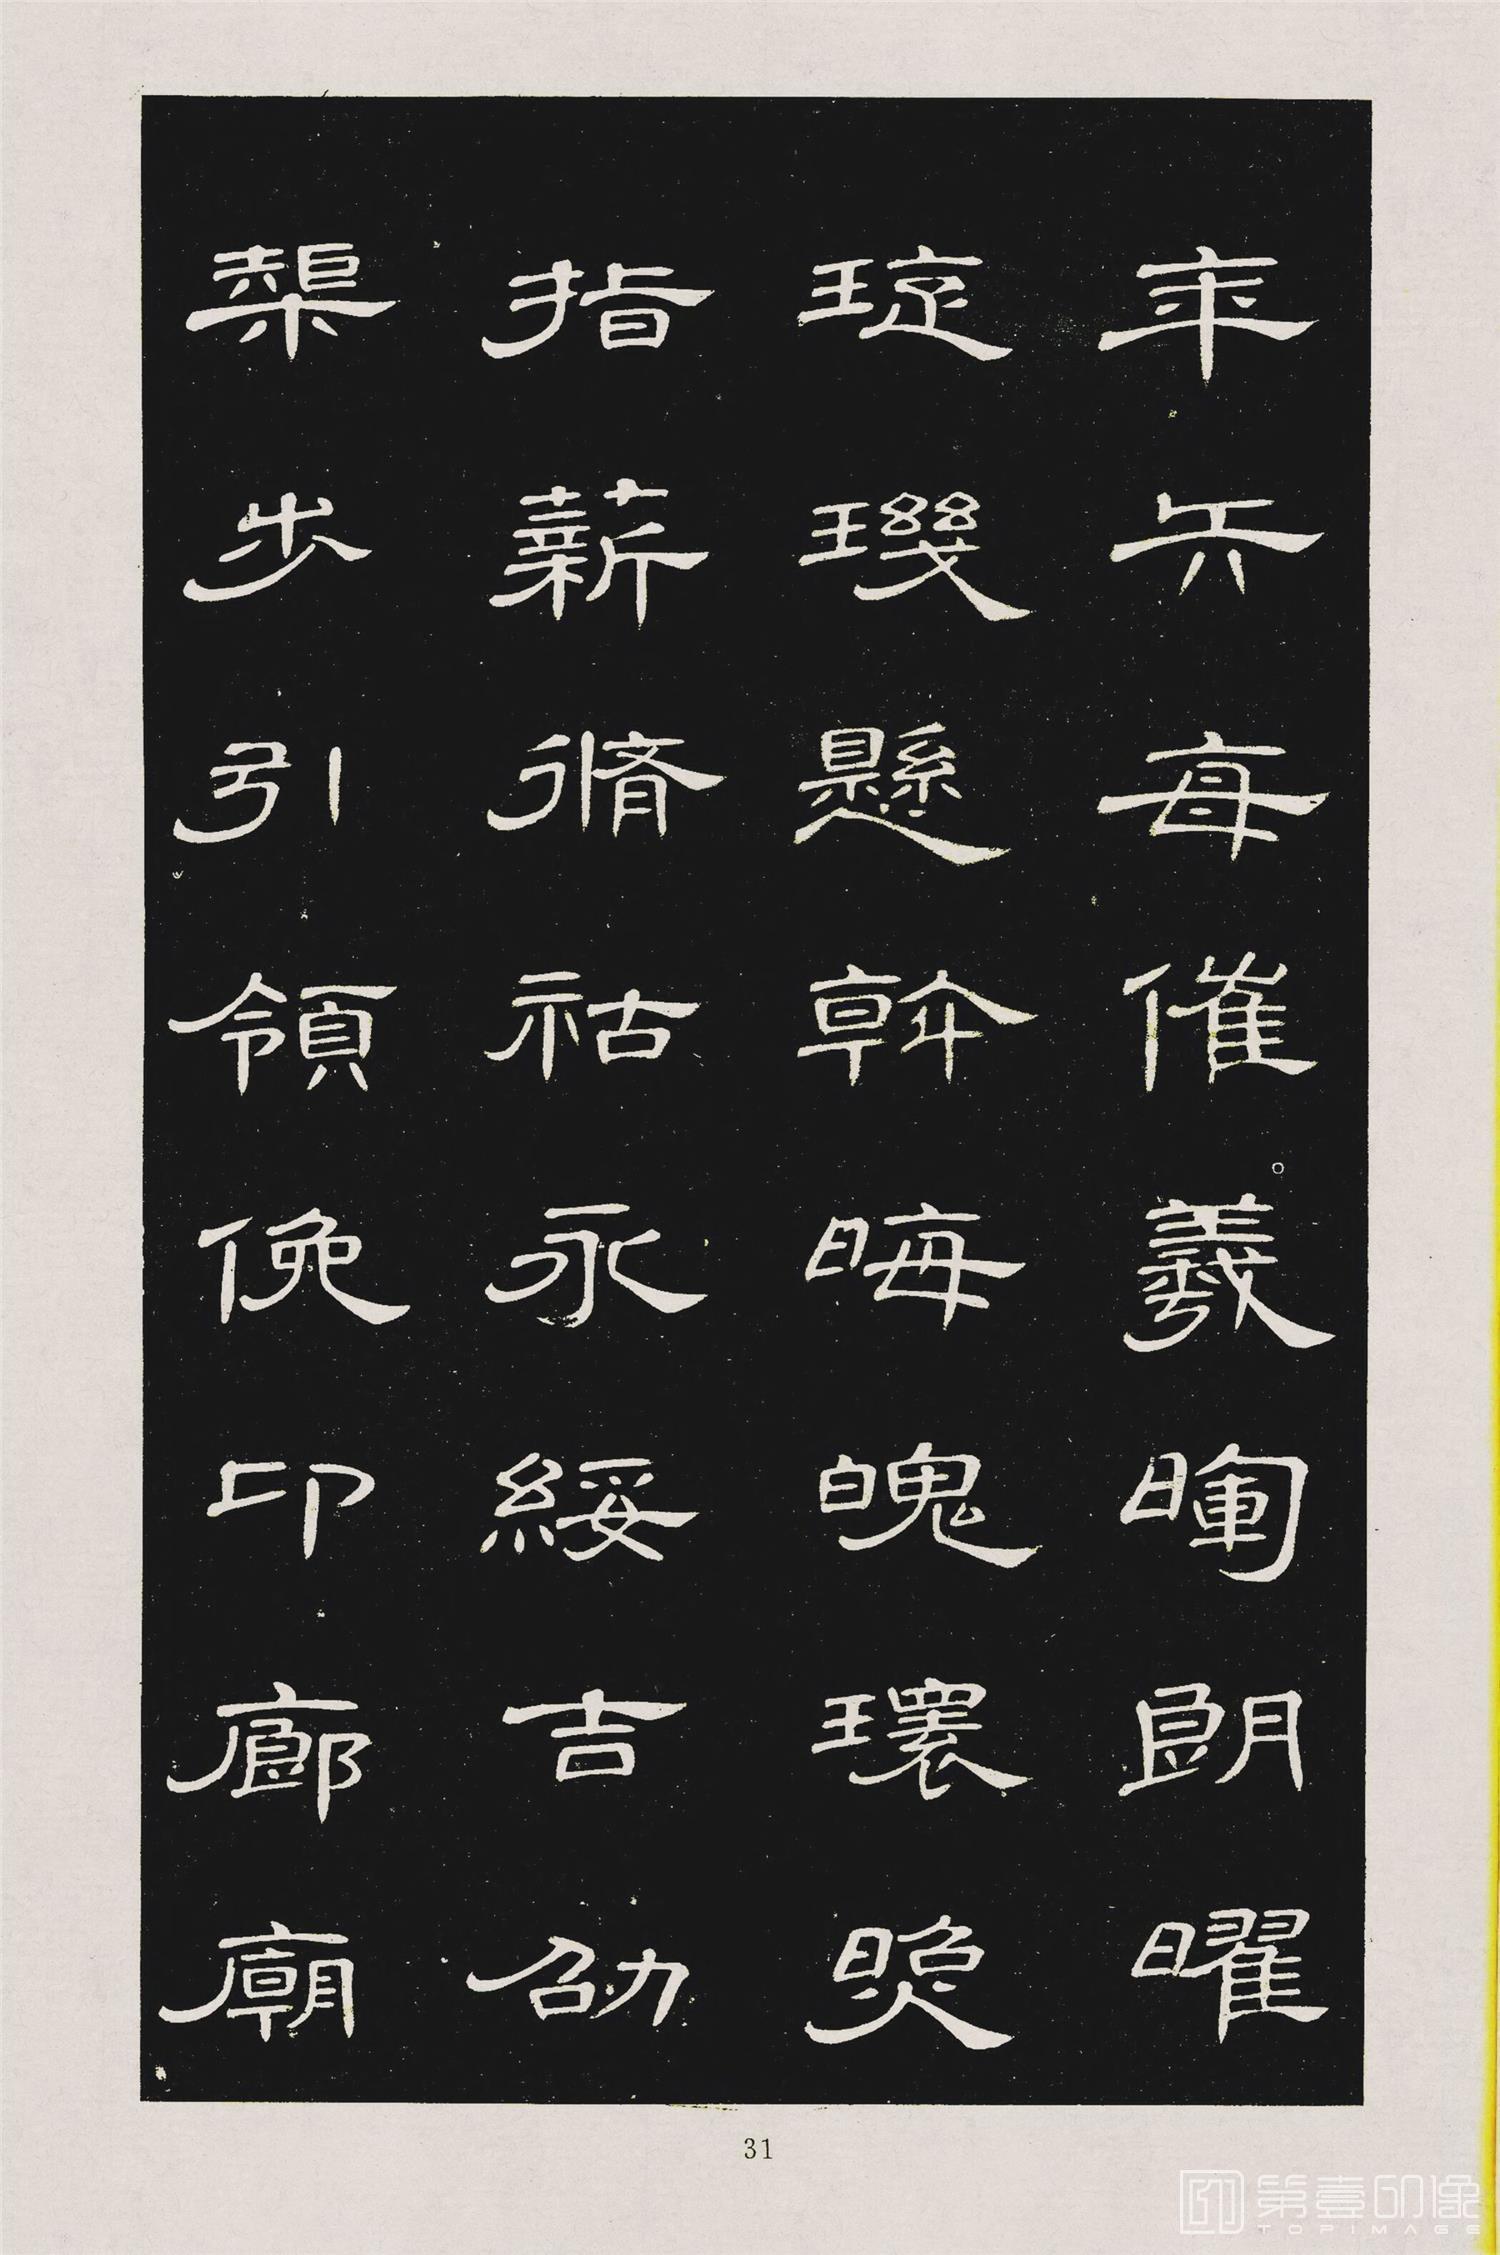 年矢每催羲暉朗曜
琁璣懸斡晦魄環照
指薪脩祜永綏吉劭
榘步引領俛卬廊廟
31
第壹印像
TOPIMAGE